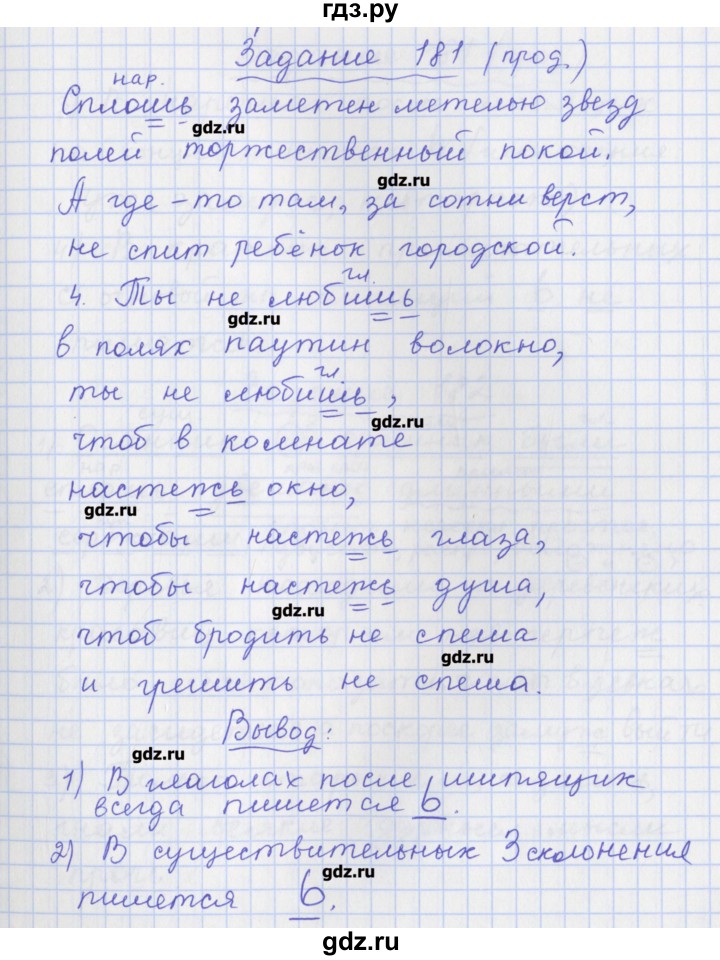 гдз.ру
Задание 181 (прод.)
нар.
Сплошь заметен метелью звезд
gdz.ru
полей торжественный покой.
gdz.ru
А где-то там, за сотни верст,
не спит ребёнок городской.
гл.
4. Ты не любишь
gdz.ru
в полях паутин волокно,
гл
ты не любишь,
gdz.ru
чтоб в комнате
настежь окно,
gdz.ru
чтобы настежь глаза,
чтобы настежь душа,
gdz.ru
чтоб бродить не спеша
gdz.ru
и грешить не спеша.
Вывод:
gdz.ru
1) В глаголах после шипящих
всегда пишется Ь.
2) В существительных 3 склонения
gdz.ru
пишется Ь.
gdz.ru